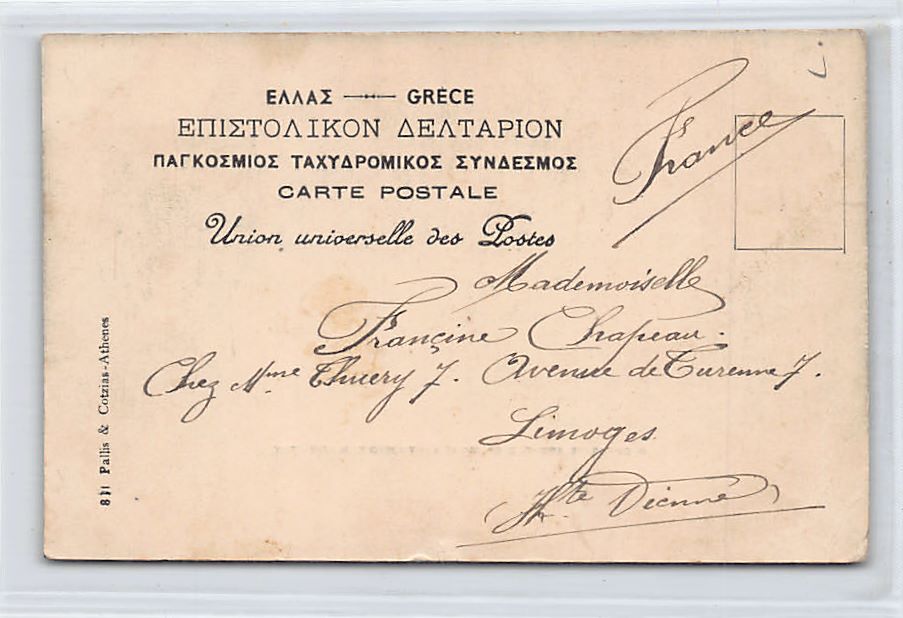 ΕΛΛΑΣ — GRÈCE
ΕΠΙΣΤΟΛΙΚΟΝ ΔΕΛΤΑΡΙΟΝ
ΠΑΓΚΟΣΜΙΟΣ ΤΑΧΥΔΡΟΜΙΚΟΣ ΣΥΝΔΕΣΜΟΣ
CARTE POSTALE
Union universelle des Postes
France
Mademoiselle
Françine Chapeau.
Chez Mme Thuery 7. Avenue de Turenne 7.
Limoges
Hte Vienne
Pallis & Cotzias-Athenes